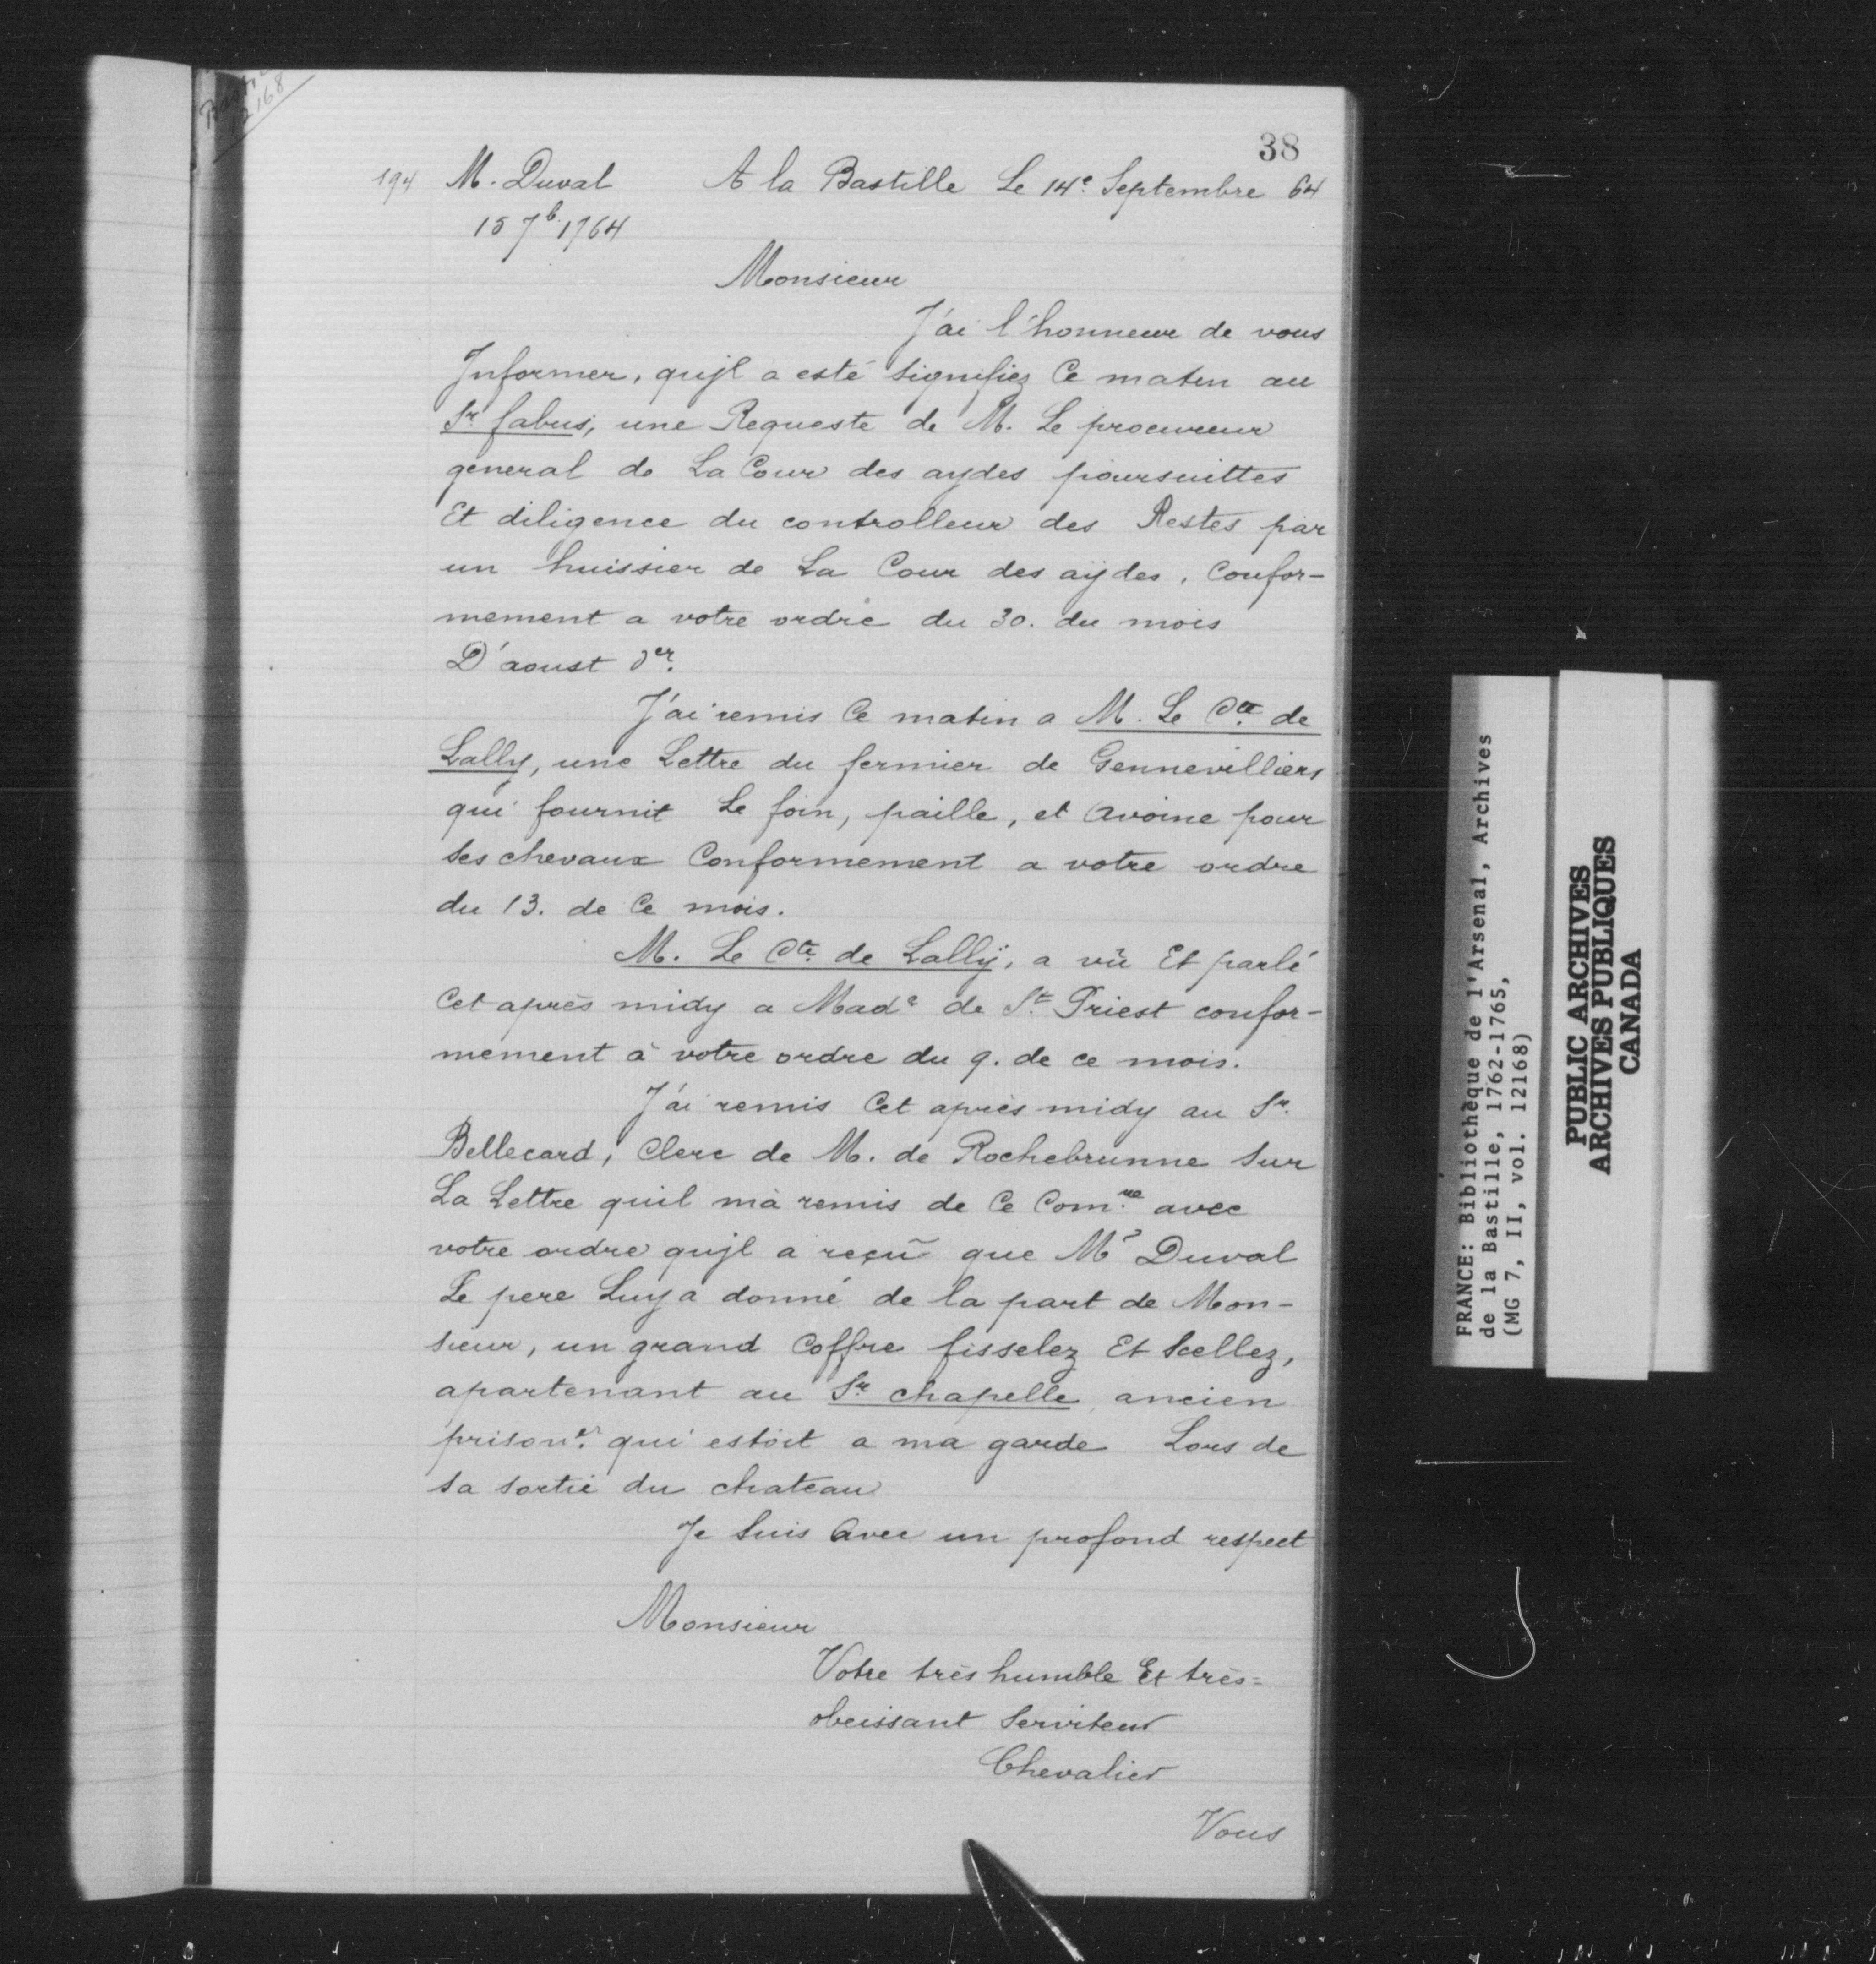 Basti
12168
38
194 M. Duval A la Bastille Le 14e Septembre 64
15 7b. 1764
Monsieur
J'ai l'honneur de vous
Informer, qujl a esté signifiez Ce matin au
Sr. fabus, une Requeste de M. Le procureur
general de La Cour des aydes poursuittes
Et diligence du controlleur des Restes par
un huissier de La Cour des aÿdes, Confor-
mement a votre ordre du 30. du mois
D'aoust der.
J'ai remis Ce matin a M. Le Cte. de
Lally, une Lettre du fermier de Gennevilliers
qui fournit Le foin, paille, et avoine pour
ses chevaux Conformement a votre ordre
du 13. de Ce mois.
M. Le Cte. de Lallÿ, a vû Et parlé
Cet après midy a Made de St. Priest confor-
mement à votre ordre du 9. de ce mois.
J'ai remis Cet après midy au Sr.
Bellecard, Clerc de M. de Rochebrunne sur
La Lettre quil mà remis de Ce Comre. avec
votre ordre qujl a reçû que Mr Duval
Le pere Luy a donné de la part de Mon-
sieur, un grand Coffre fisselez Et Scellez,
apartenant au Sr. chapelle ancien
prisonr. qui estoit a ma garde Lors de
sa sortie du chateau
Je suis avec un profond respect
Monsieur
Votre très humble Et très=
obeissant Serviteur
Chevalier
Vous
FRANCE: Bibliothèque de l'Arsenal, Archives
de la Bastille, 1762-1765,
(MG 7, II, vol. 12168)
PUBLIC ARCHIVES
ARCHIVES PUBLIQUES
CANADA